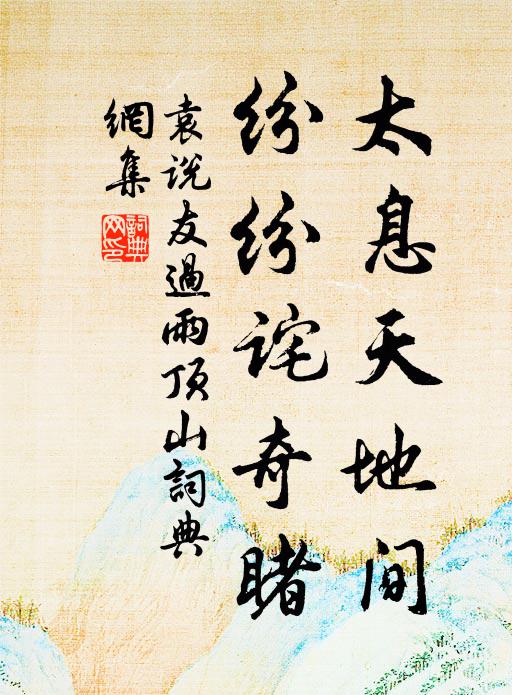 太息天地间
纷纷诧奇睹
袁说友過雨顶山詞典
網集
詞典網印